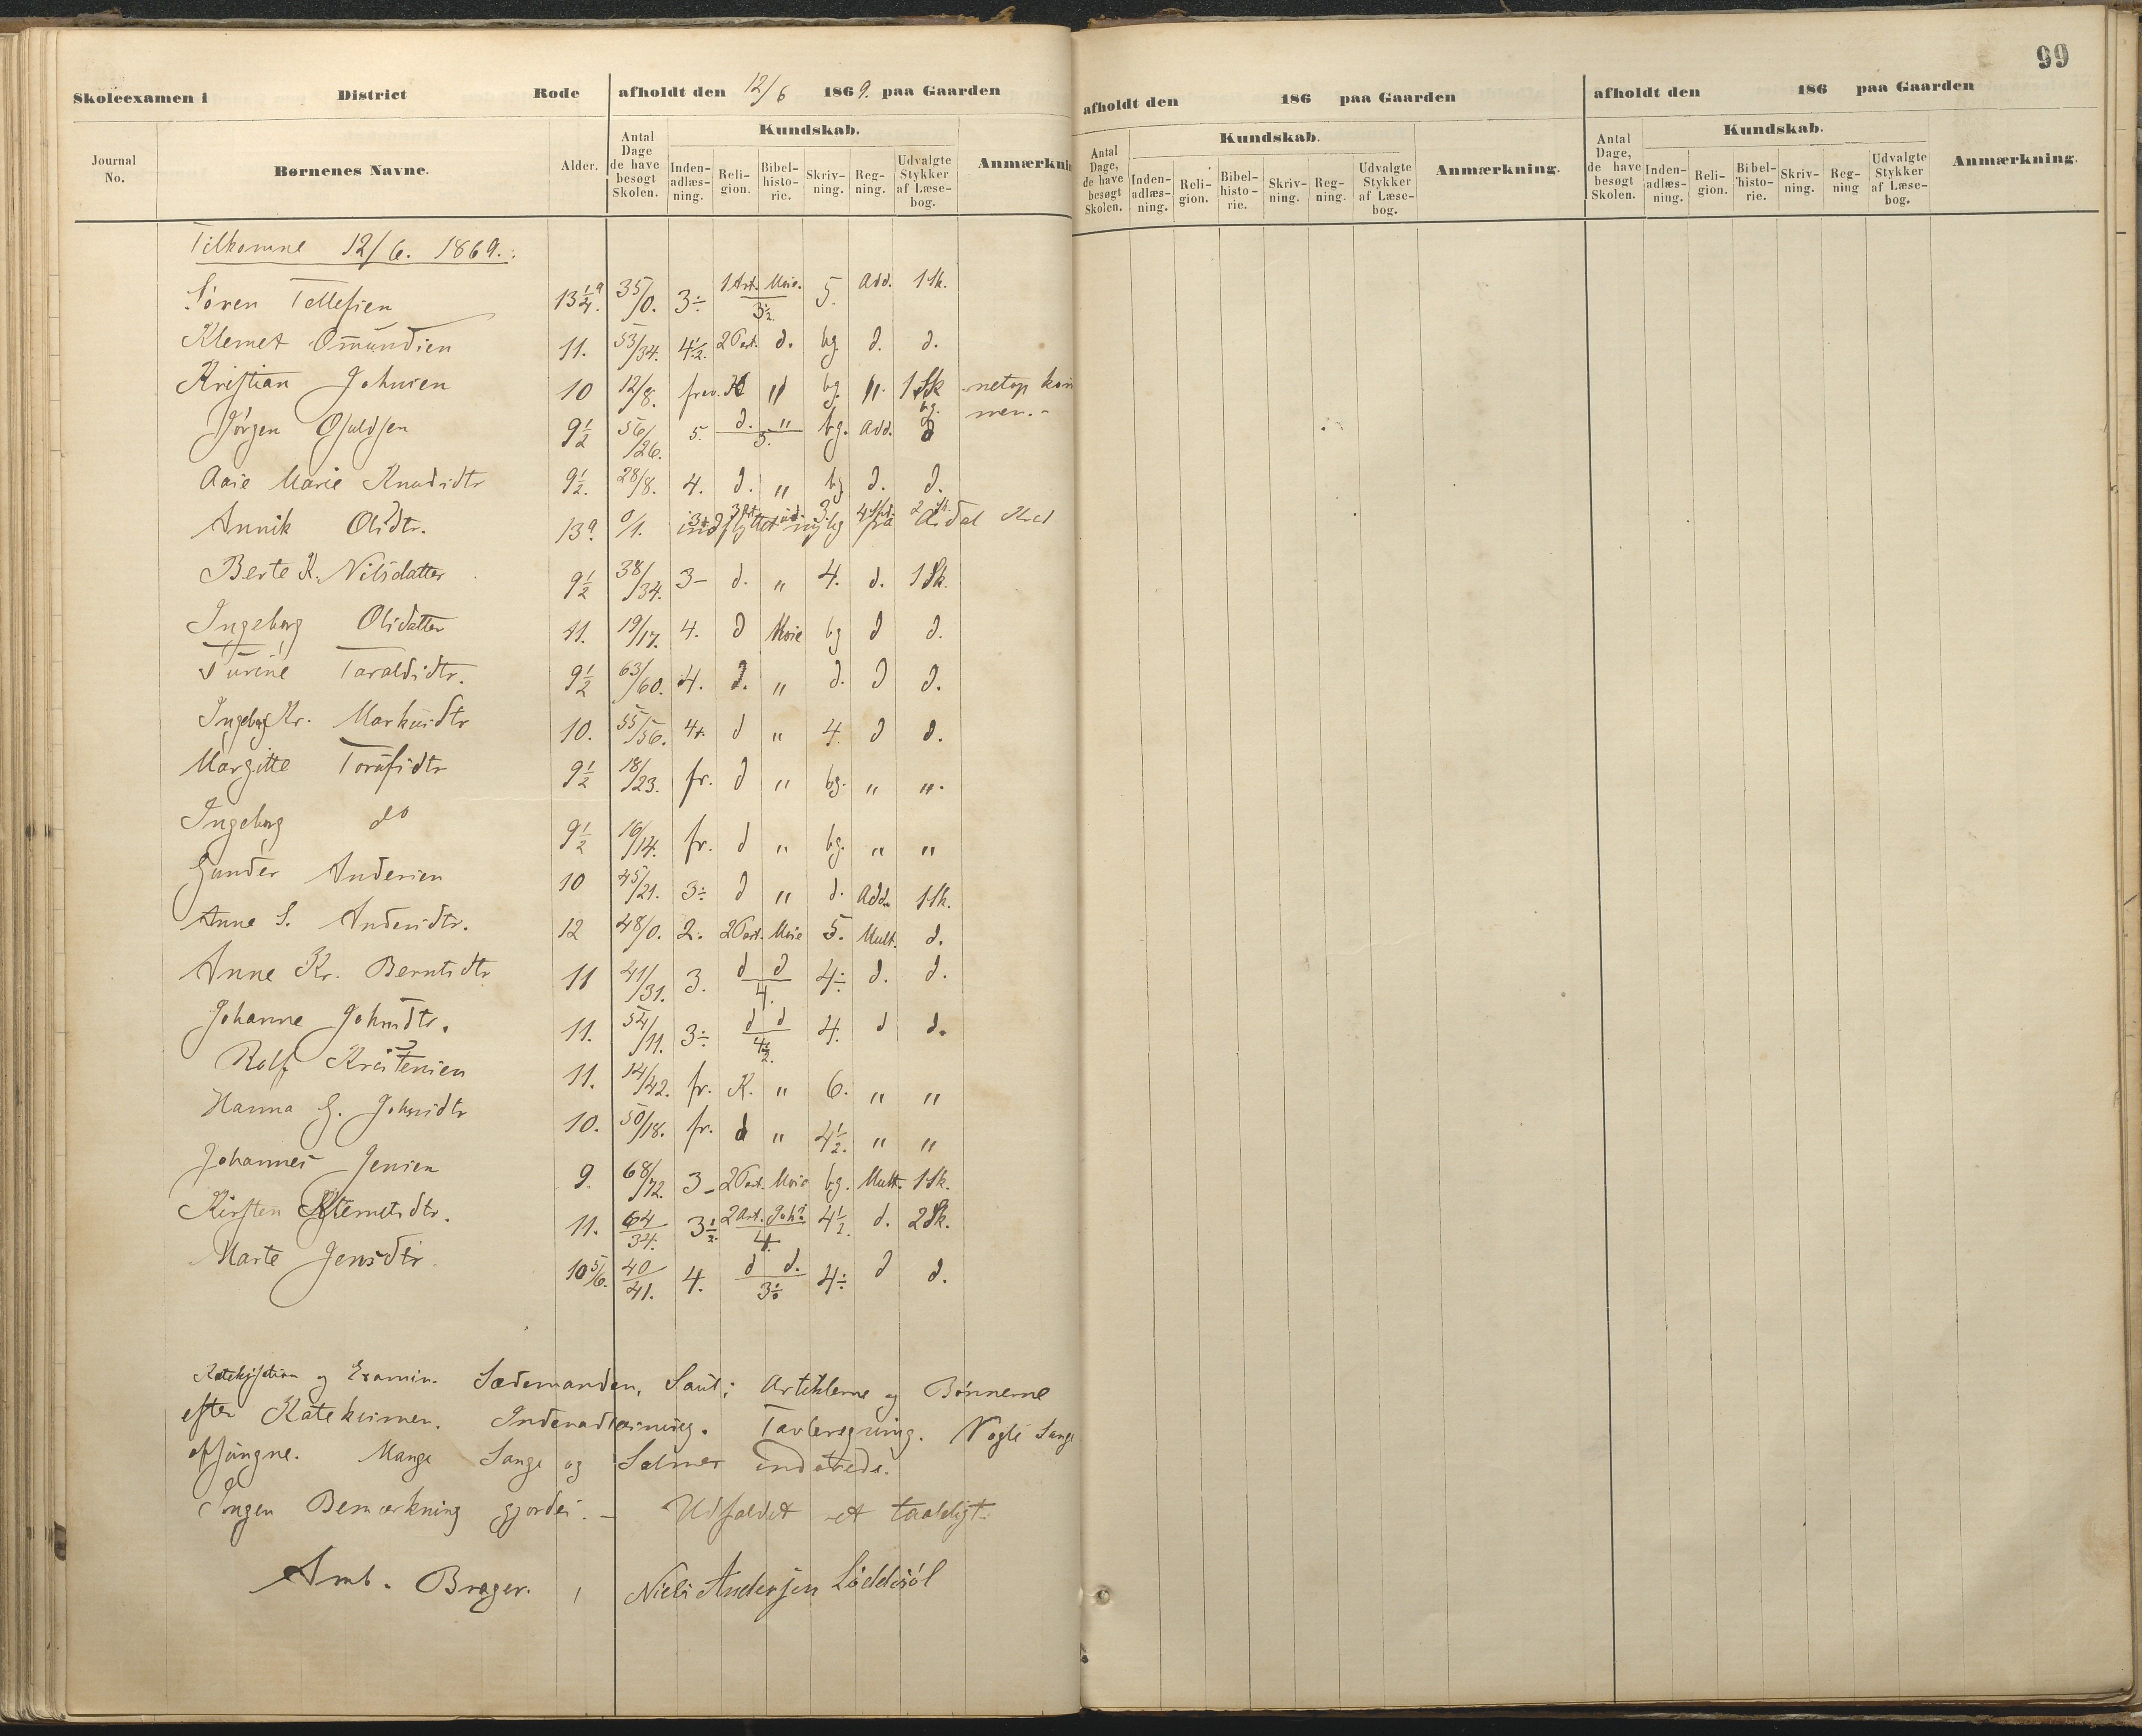 99
Skoleexamen i District Rode afholdt den 12/6 1869. paa Gaarden
Journal No. Børnenes Navne. Alder. Antal Dage de have besøgt Skolen. Kundskab. Inden-adlæs-ning. Reli-gion. Bibel-histo-rie. Skriv-ning. Reg-ning. Udvalgte Stykker af Læse-bog. Anmærkni
Tilkomne 12/6. 1869.:
Søren Tellefsen 13 1/4 a. 35/0. 3÷ 1 Art. Mose. 3 1/2 5. Add. 1 Sk.
Klemet Omundsen 11. 53/34. 4 1/2. 2 Part. d. bg. d. d.
Kristian Johnsen 10 12/8. frav. K " bg. ". 1 Sk netop kom
Jörgen Osuldsen 9 1/2 56/26. 5. d. " 5. bg. Add. bg. d men.-
Aase Marie Knudsdtr 9 1/2. 28/8. 4. d. " bg d. d.
Annik Olsdtr. 13 a. 0/1. indflyttet nylig fra
Berte K. Nilsdatter 9 1/2 38/34. 3- d. " 4. d. 1 Sk.
Ingeborg Olsdatter 11. 19/17. 4. d Mose bg d d.
Turine Taraldsdtr. 9 1/2 63/60. 4. d. " d. d d.
Ingeborg Kr. Markusdtr 10. 55/56. 4+. d " 4. d d.
Margitte Torufsdtr 9 1/2 18/23. fr. d " bg. " ".
Ingeborg do 9 1/2 16/14. fr. d " bg. " "
Gunder Andersen 10 45/21. 3÷ d " d. Add. 1 Sk.
Anne S. Andersdtr. 12 48/0. 2÷ 2 Part. Mose 5. Mult. d.
Anne Kr. Berntsdtr 11 41/31. 3. d d 4. 4÷ d. d.
Johanne Johnsdtr. 11. 54/11. 3÷ d d 4 1/2. 4. d d.
Rolf Kristensen 11. 14/42. fr. K. " 6. " "
Hanna G. Johnsdtr 10. 50/18. fr. d " 4 1/2. " "
Johannes Jensen 9. 68/72. 3- 2 Part. Mose bg. Mult. 1 Sk.
Kirsten Klemetsdtr. 11. 64/34. 3 1/2 2 Art. Joh. 4. 4 1/2. d. 2 Sk.
Marte Jensdtr. 10 5/6. 40/41. 4. d d. 3÷ 4÷ d d.
Katekisation og Examin. Sædemanden, Saul; Artiklerne og Bönnerne
efter Katekismen. Indenadlæsning. Tavleregning. Nogle Sange
afsungne. Mange Sange og Salmer indövede.
Ingen Bemærkning gjordes. – Udfaldet ret taaleligt.
Amb. Brager. Niels Andersen Løddesøl
afholdt den 186 paa Gaarden
Antal Dage, de have besøgt Skolen. Kundskab. Inden-adlæs-ning. Reli-gion. Bibel-histo-rie. Skriv-ning. Reg-ning. Udvalgte Stykker af Læse-bog. Anmærkning.
afholdt den 186 paa Gaarden
Antal Dage, de have besøgt Skolen. Kundskab. Inden-adlæs-ning. Reli-gion. Bibel-histo-rie. Skriv-ning. Reg-ning Udvalgte Stykker af Læse-bog. Anmærkning.